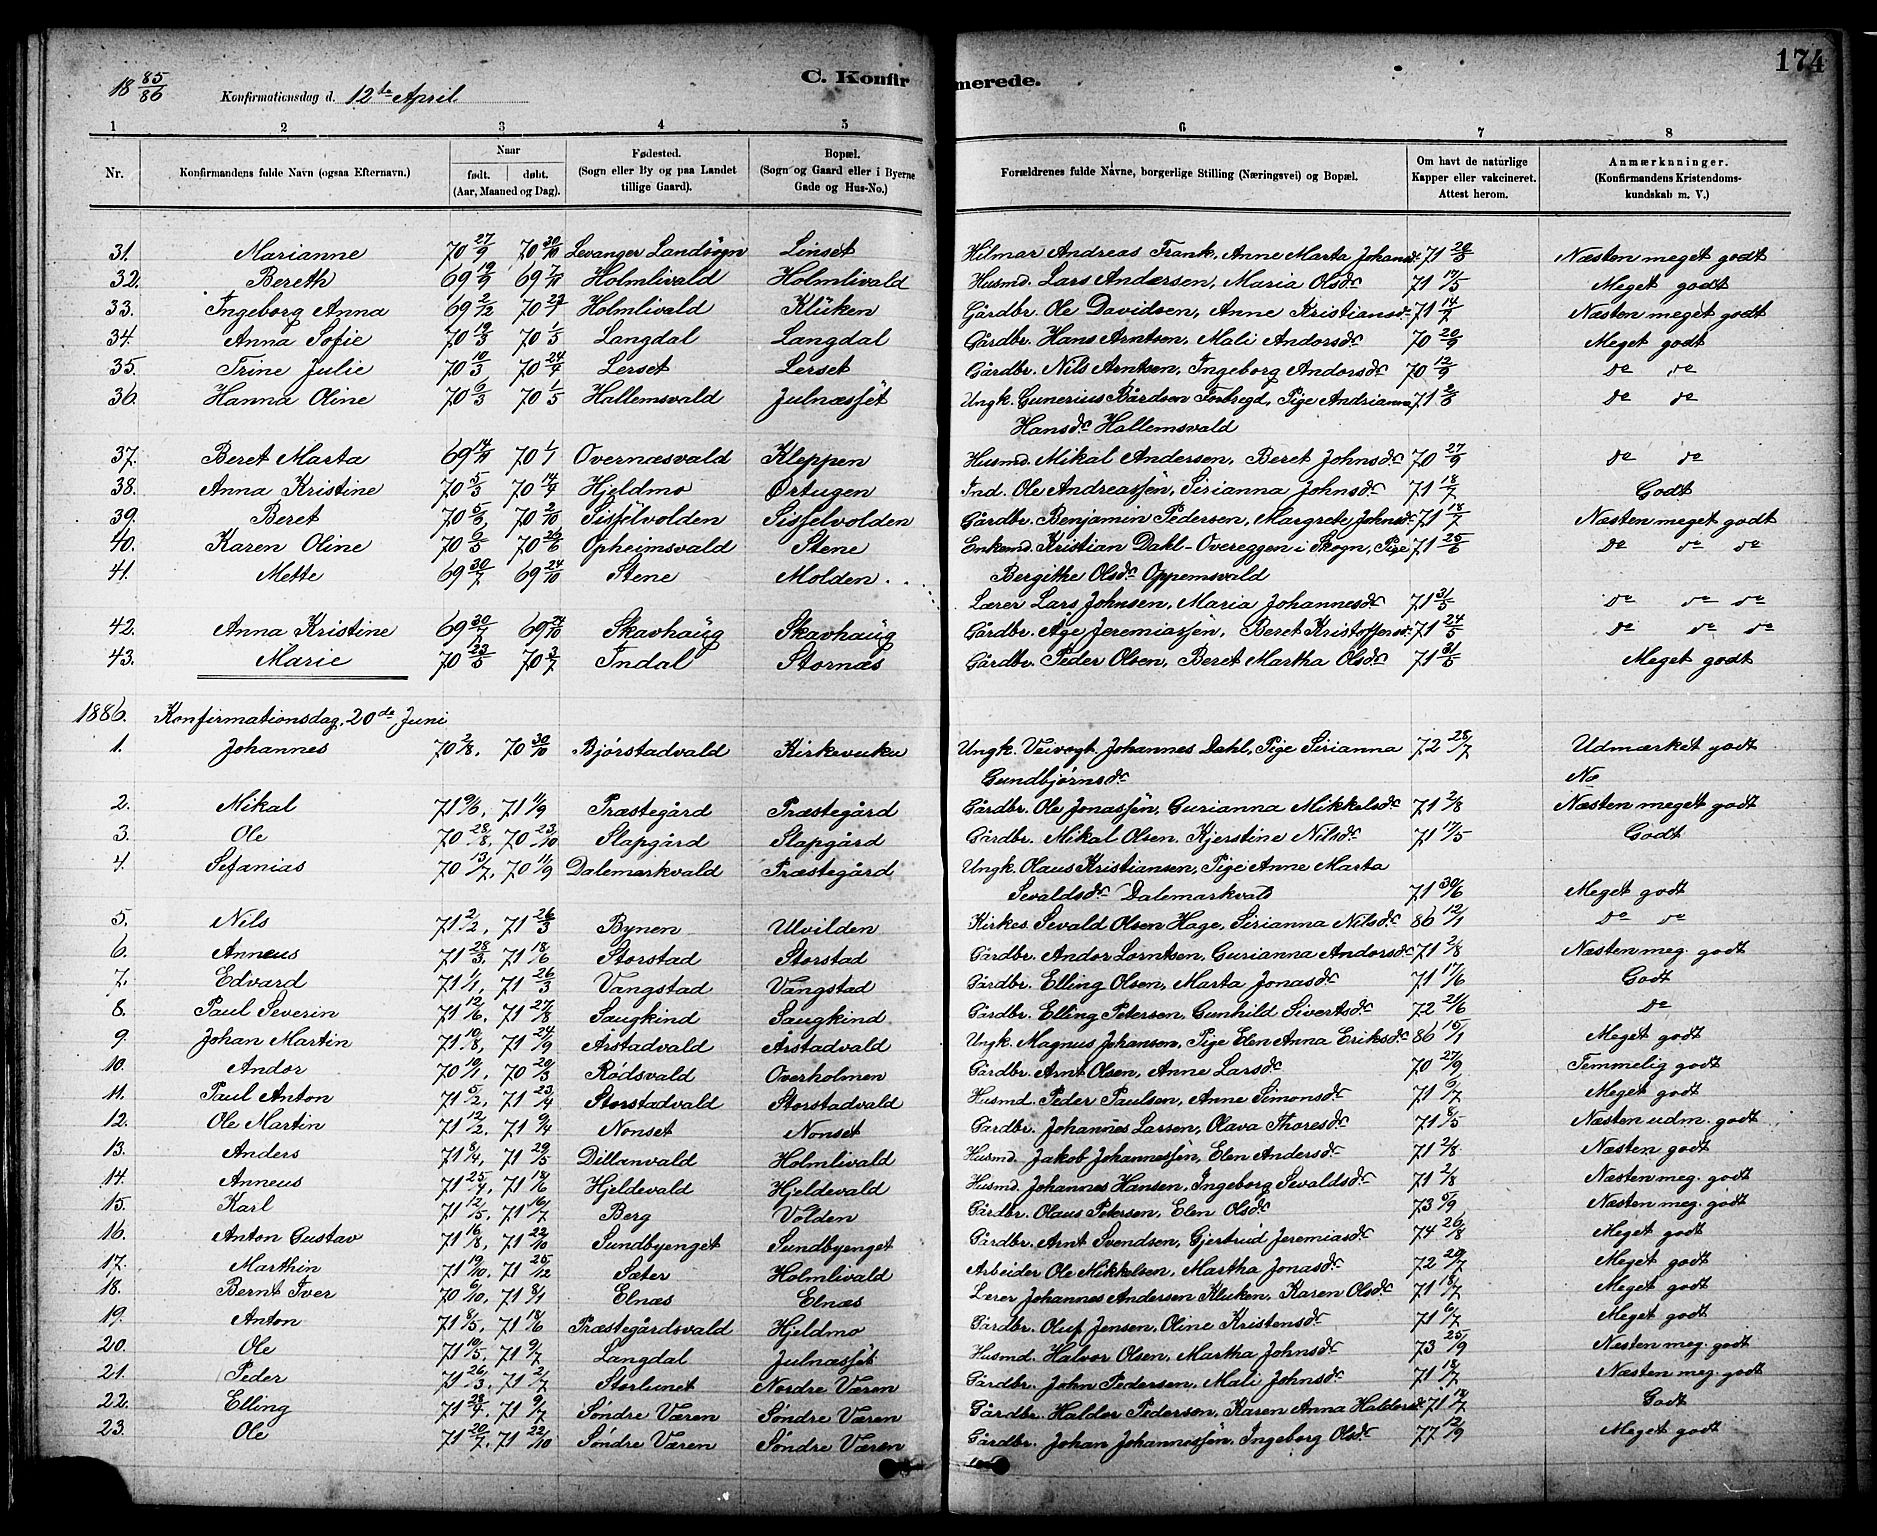 174
18 85/86 Konfirmationsdag d. 12te April
C. Konfirmerede.
1 2 3 4 5 6 7 8
Nr. Konfirmandens fulde Navn (ogsaa Efternavn). Naar født. døbt. (Aar, Maaned og Dag). Fødested. (Sogn eller By og paa Landet tillige Gaard). Bopæl. (Sogn og Gaard eller i Byerne Gade og Hus-No.) Forældrenes fulde Navne, borgerlige Stilling (Næringsvei) og Bopæl. Om havt de naturlige Kapper eller vakcineret. Attest herom. Anmærkninger. (Konfirmandens Kristendomskundskab m. V.)
31. Marianne 70 27/9 70 20/10 Levanger Landsogn Linset Hilmar Andreas Frank, Anne Marta Johansd. 71 Næsten meget godt
32. Bereth 69 19/9 69 Holmlivald Holmlivald Husmd. Lars Andersen, Maria Olsdr 71 17/5 Meget godt
33. Ingeborg Anna 69 2/12 70 Holmlivald Klüken Gårdbr. Ole Davidsen, Anne Kristiansdr 71 14/7 Næsten meget godt
34. Anna Sofie 70 19/3 70 1/5 Langdal Langdal Gårdbr. Hans Arntsen, Mali Andorsdr 70 20/9 Meget godt
35. Trine Julie 70 10/3 70 24/4 Lerset Lerset Gårdbr. Nils Arntsen, Ingeborg Andorsdr 70 12/9 do do
36. Hanna Oline 70 6/3 70 1/5 Hallemsvald Julnæssét Ungk. Gunerius Bårdsen Forbregd, Pige Andrianna 71 do do
Hansdr Hallemsvald
37. Beret Marta 69 70 1/1 Overnæsvald Kleppen Husmd. Mikal Andersen, Beret Johnsdr 70 27/9 do do
38. Anna Kristine 70 5/3 70 Hjeldmo Ørtugen Ind. Ole Andreassen, Sirianna Johnsdr 71 18/7 Godt
39. Beret 70 70 2/10 Sisselvolden Sisselvolden Gårdbr. Benjamin Pedersen, Margrete Johnsdr 71 18/7 Næsten meget godt
40. Karen Oline 70 70 26/6 Opheimsvald Stene Enkemd. Kristian Dahl-Overeggen i Skogn, Pige 71 25/6 Do do do
41. Mette 69 30/7 69 24/10 Stene Molden Bergithe Olsdr Oppemsvald
Lærer Lars Johnsen, Maria Johannesdr 71 31/5 do do do
42. Anna Kristine 69 30/7 69 24/10 Skavhaug Skavhaug Gårdbr. Åge Jeremiassen, Beret Kristoffersdr. 71 24/5 do do do
43. Marie 70 23/5 70 3/7 Indal Stornæs Gårdbr. Peder Olsen, Beret Martha Olsdr 71 31/5 Meget godt
1886. Konfirmationsdag, 20de Juni
1. Johannes 70 2/8, 70 30/10 Bjørstadvald Kirkevuku Ungk. Veivogt. Johannes Dahl, Pige Sirianna 72 28/7 Udmærket godt
Gundbjørnsdr Næ
2. Mikal 71 71 11/9 Præstegård Præstegård Gårdbr. Ole Jonassen, Gurianna Mikkelsdr 71 2/8 Næsten meget godt
3. Ole 70 28/8, 70 23/10 Slapgård Slapgård Gårdbr. Mikal Olsen, Kjerstine Nilsdr 71 17/5 Godt
4. Sefanias 70 13/7, 70 11/9 Dalemarkvald Præstegård Ungk. Olaus Kristiansen, Pige Anne Marta
Sevaldsdr Dalemarkvald 71 30/6 Meget godt
5. Nils 71 2/2, 71 26/3 Bynen Ulvilden Kirkes. Sevald Olsen Hage, Sirianna Nilsdr 86 12/1 Do do
6. Anneus 71 28/3, 71 18/6 Storstad Storstad Gårdbr. Andor Lorntsen, Gurianna Andorsdr 71 2/8 Næsten meg. godt
7. Edvard 71 1/1, 71 26/3 Vangstad Vangstad Gårdbr. Elling Olsen, Marta Jonasdr 71 17/6 Godt
8. Paul Severin 71 12/6, 71 27/8 Saugkind Saugkind Gårdbr. Elling Petersen, Gunhild Sivertsdr 72 21/6 do
9. Johan Martin 71 10/8, 71 24/9 Årstadvald Årstadvald Ungk. Magnus Johansen, Pige Elen Anna Eriksdr 86 15/1 Meget godt
10. Andor 70 10/1, 70 20/3 Rødsvald Overholmen Gårdbr. Arnt Olsen, Anne Larsdr 70 27/9 Temmelig godt
11. Paul Anton 71 5/2, 71 23/4 Storstadvald Storstadvald Husmd. Peder Paulsen, Anne Simonsdr 71 Meget godt
12. Ole Martin 71 12/2, 71 9/4 Nonset Nonset Gårdbr. Johannes Larsen, Olava Thoresdr 71 8/5 Næsten udm. godt
13. Anders 71 71 29/5 Dillanvald Holmlivald Husmd. Jakob Johannessen, Elen Andersdr 71 2/8 Næsten godt
14. Anneus 71 25/4, 71 18/6 Hjeldevald Hjeldevald Husmd. Johannes Hansen, Ingeborg Sevaldsdr 71 2/8 Næsten meg. godt
15. Karl 71 12/5, 71 16/7 Berg Volden Gårdbr. Olaus Petersen, Elen Olsdr 73 Næsten meg. godt
16. Anton Gustav 71 16/8, 71 22/10 Sundbyenget Sundbyenget Gårdbr. Arnt Svendsen, Gjertrud Jeremiasdr 74 26/8 Meget godt
17. Marthin 71 19/10, 71 25/12 Sæter Holmlivald Arbeider Ole Mikkelsen, Martha Jonasdr 72 20/7 Meget godt
18. Bernt Iver 70 6/10, 71 Elnæs Elnæs Lærer Johannes Andersen Kluken, Karen Olsdr 71 18/7 Meget godt
19. Anton 71 8/5, 71 18/6 Præstegårdsvald Hjeldmo Gårdbr. Oluf Jensen, Oline Kristensdr 71 6/7 Meget godt
20. Ole 71 10/5, 71 9/7 Langdal Julnæssét Husmd. Halvor Olsen, Martha Johnsdr 73 25/9 Næsten meg. godt
21. Peder 71 26/3, 71 2/7 Storlunet Nordre Væren Gårdbr. John Pedersen, Mali Johnsdr 71 18/7 Næsten meg. godt
22. Elling 71 28/4, 71 9/7 Søndre Væren Søndre Væren Gårdbr. Haldor Pedersen, Karen Anna Haldorsdr 71 Godt
23. Ole 71 20/7, 71 22/10 Søndre Væren Søndre Væren Gårdbr. Johan Johannessen, Ingeborg Olsdr 77 12/9 Meget godt